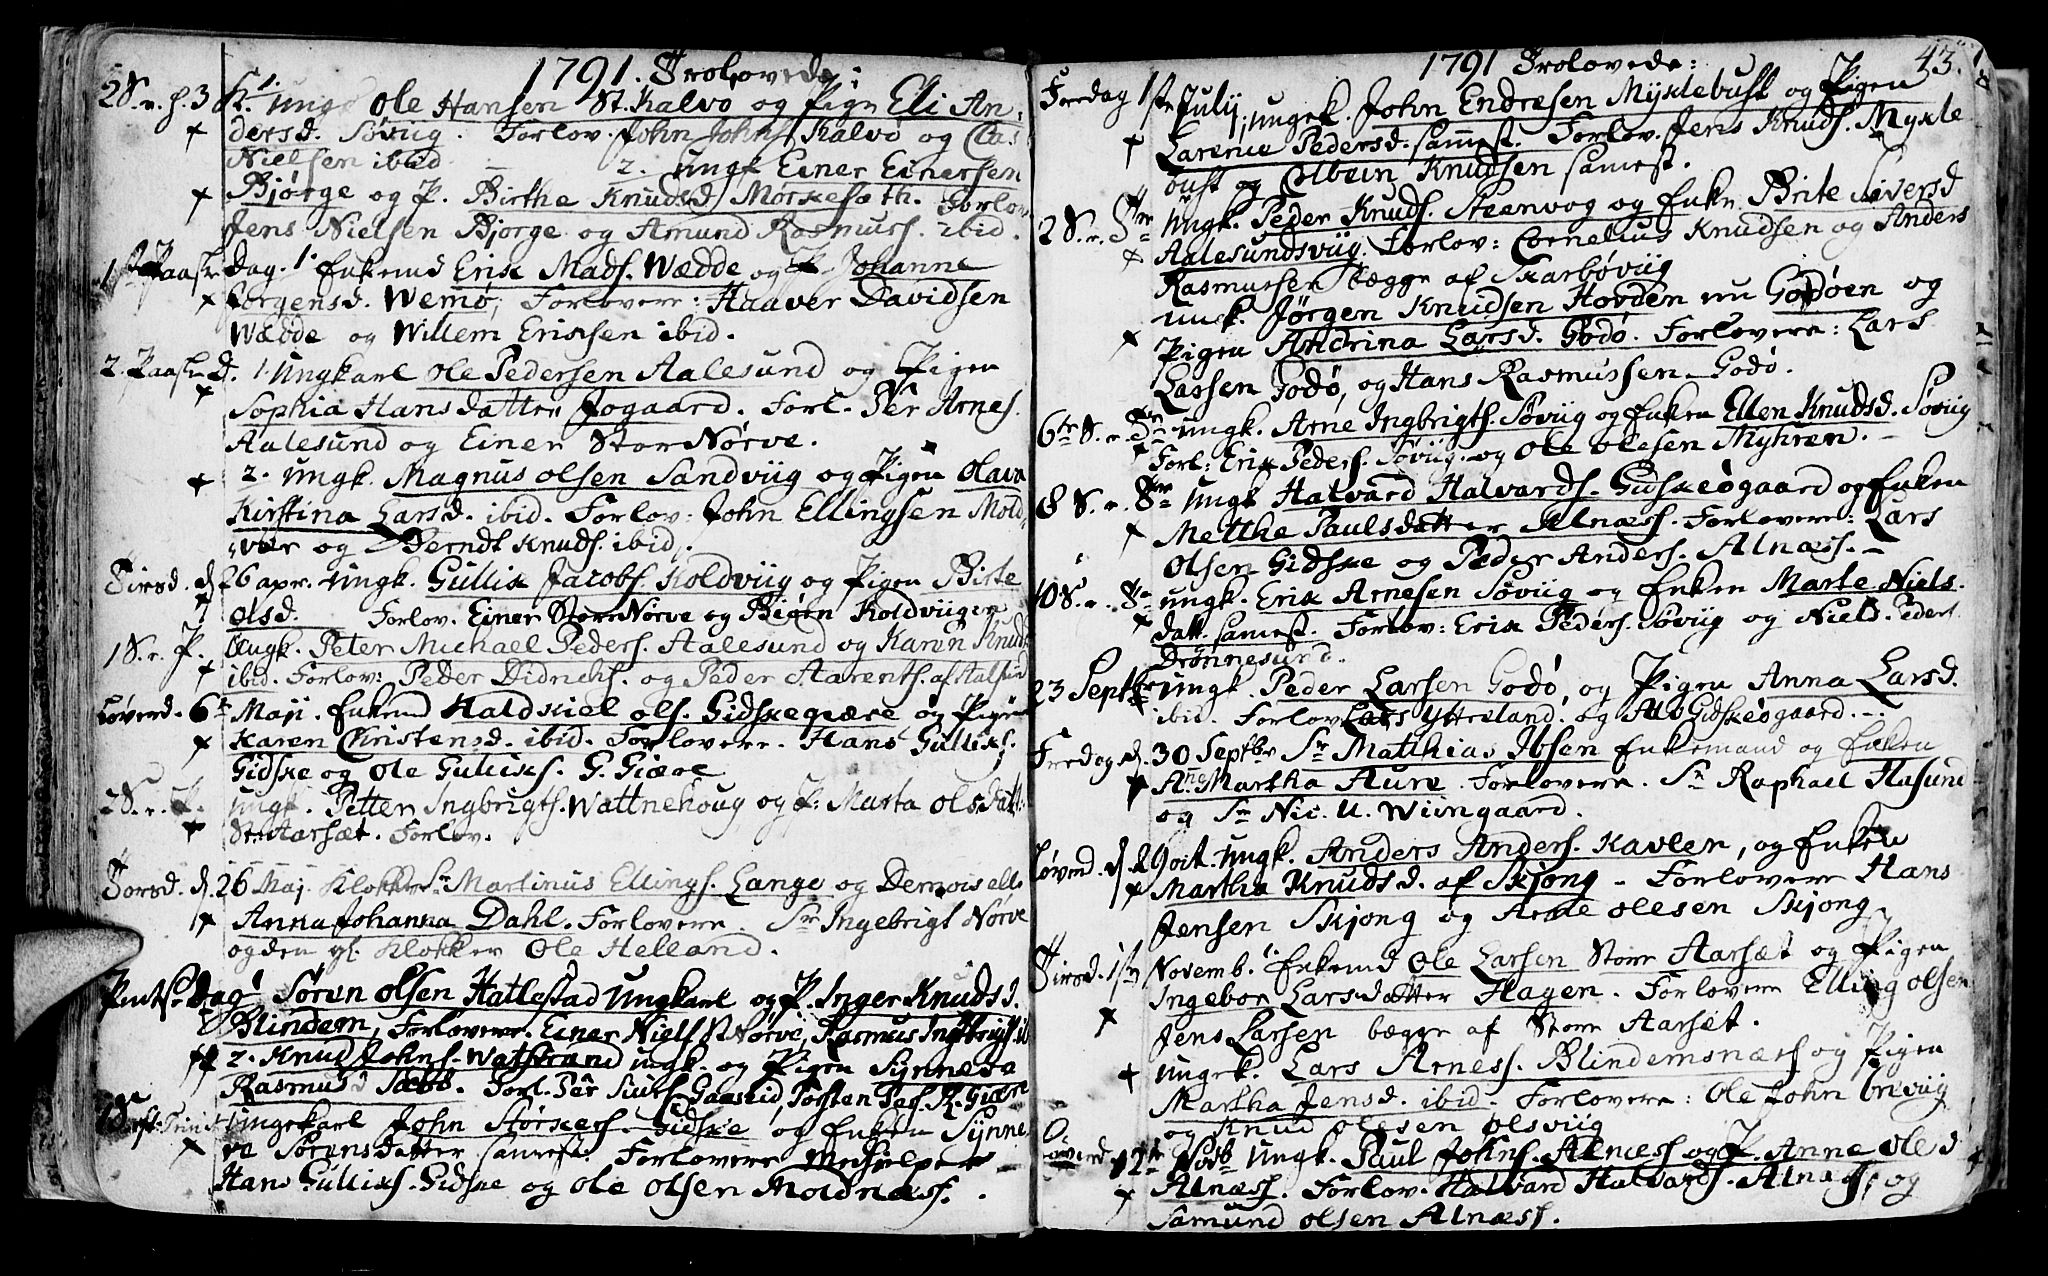 1791. Trolovede:
2 S. e. H. 3 K. 1. Ungk. Ole Hansen St. Kalvø og Pign Eli An-
dersd. Søviig. Forlov. John Johns. Kalvø og Clas
Nielsen ibid.
2. Ungk Einer Einersen
Bjørge og P. Birthe Knudsd Morkesæth. Forlov
Jens Nielsen Bjorge og Amund Rasmuss. ibid.
1ste Paaske Dag. 1. Enkemd Erik Mads. Wædde og P. Johanne
Jorgensd. Wemø, Forlovere: Haaver Davidsen
Wædde og Willem Eriksen ibid.
2. Paaske D. 1. Ungkarl Ole Pedersen Aalesund og Pigen
Sophia Hansdatter Jogaard. Forl. Per Arnes.
Aalesund og Einer Stor Nørve.
2. Ungk. Magnus Olsen Sandviig og Pigen Olava
Kirstina Larsd. ibid. Forlov: John Ellingsen Mold-
vær og Berndt Knuds. ibid.
Tirsd. d. 26 apr. Ungk. Gullik Jacobs. Koldviig og Pigen Birte
Olsd. Forlov. Einer Stor Nørve og Biørn Koldviigen
1 S. e. P. Ungk. Peter Michael Peders. Aalesund og Karen Knuds
ibid. Forlov: Peder Didrichs. og Peder Aarents. af Aalsund
Løverd. 6te Maji. Enkemd Haldskiel Ols. Gidskegiære og Pigen
Karen Christensd. ibid. Forlovere. Hans Gulliks.
Gidske og Ole Gulliks. G. Giære
2 S. e. P. Ungk. Petter Ingbrigts. Wattnehoug og P: Marta Ols Datt:
St. Aarsæt. Forlov.
Torsd. d. 26 Maj. Klokker Sr Martinus Ellings. Lange og Demoiselle
Anna Johanna Dahl. Forlovere Sr Ingebrigt Nørve
og den gl. Klokker Ole Helland.
Pintse Dag Søren Olsen Hatlestad Ungkarl og P. Inger Knudsd.
Blindem, Forlovere. Einer Niels St. Nørve, Rasmus Ingbrigts. ib
2. Knud Johns. Watstrand ungk. og Pigen Synneva
Rasmusd Sæbø. Forl. Per Siurs. Gaaseid, Torsten Pers. R. Giære
1 S. eft. Trinit Ungekarl John Størkers. Gidske og Enken Synne
ve Sørensdatter samest. Forlovere Medhielper
Hans Gulliks. Gidske og Ole Olsen Moldnæss.
1791 Trolovede: 43.
Fredag 1ste Julij, Ungek. John Endresen Myklebust og Pigen
Larence Pedersd. samest. Forlov. Jens Knuds. Mykle
bust og Colbein Knudsen samest.
2 S. e. Tr. Ungk. Peder Knuds. Steenvog og Enkn Brite Siversd
Aalesundsviig. Forlov: Cornelius Knudsen og Anders
Rasmussen begge af Skarbøviig
Ungk. Jörgen Knudsen Hovden nu Godøen og
Pigen Andrina Larsd. Godø. Forlovere: Lars
Larsen Godø, og Hans Rasmussen Godø.
6te S. e. Tr. Ungk. Arne Ingbrigts. Søviig og Enken Ellen Knudsd. Søviig
Forl: Erik Peders. Søviig og Ole Olesen Myhren.
8 S. e. Tr. Ungk Halvard Halvards. Gidskeøgaard og Enken
Metthe Paulsdatter Alnæss. Forlovere: Lars
Olsen Gidske og Peder Anders. Alnæss.
10 S. e. Tr. Ungk. Erik Arnesen Søviig og Enken Marte Niels-
datt. samest. Forlov: Erik Peders. Søviig og Niels Peders
Drønnesund.
23 Septbr Ungk. Peder Larsen Godø, og Pigen Anna Larsd.
ibid. Forlov Lars Ytterland. og Gidskeøgaard.
Fredag d. 30 Septbr Sr Matthias Ibsen Enkemand og Enken
Ane Martha Aure. Forlovere. Sr Raphael Hasund
og Sr Nic. U. Wiingaard.
Løverd d. 29 oct. Ungk. Anders Anders. Kavlen, og Enken
Martha Knudsd. af Skjong. Forlovere Hans
Jensen Skjong og Arne Olesen Skjong.
Tirsd. 1ste Novemb. Enkemd Ole Larsen Store Aarsæt og Pigen
Ingebor Larsdatter Hagen. Forlovere Elling Olsen
Jens Larsen begge af Store Aarsæt.
Ungek. Lars Arness. Blindemsnæss og Pigen
Martha Jensd. ibid. Forlovere: Ole John Ørsviig
og Knud Olesen Olsviig
Løverd. 12te Novb Ungk. Paul Johns. Alnæss og P. Anne Olsd
Alnæss. Forlov. Halvard Halvards. Alnæss, og
Samund Olsen Alnæss.